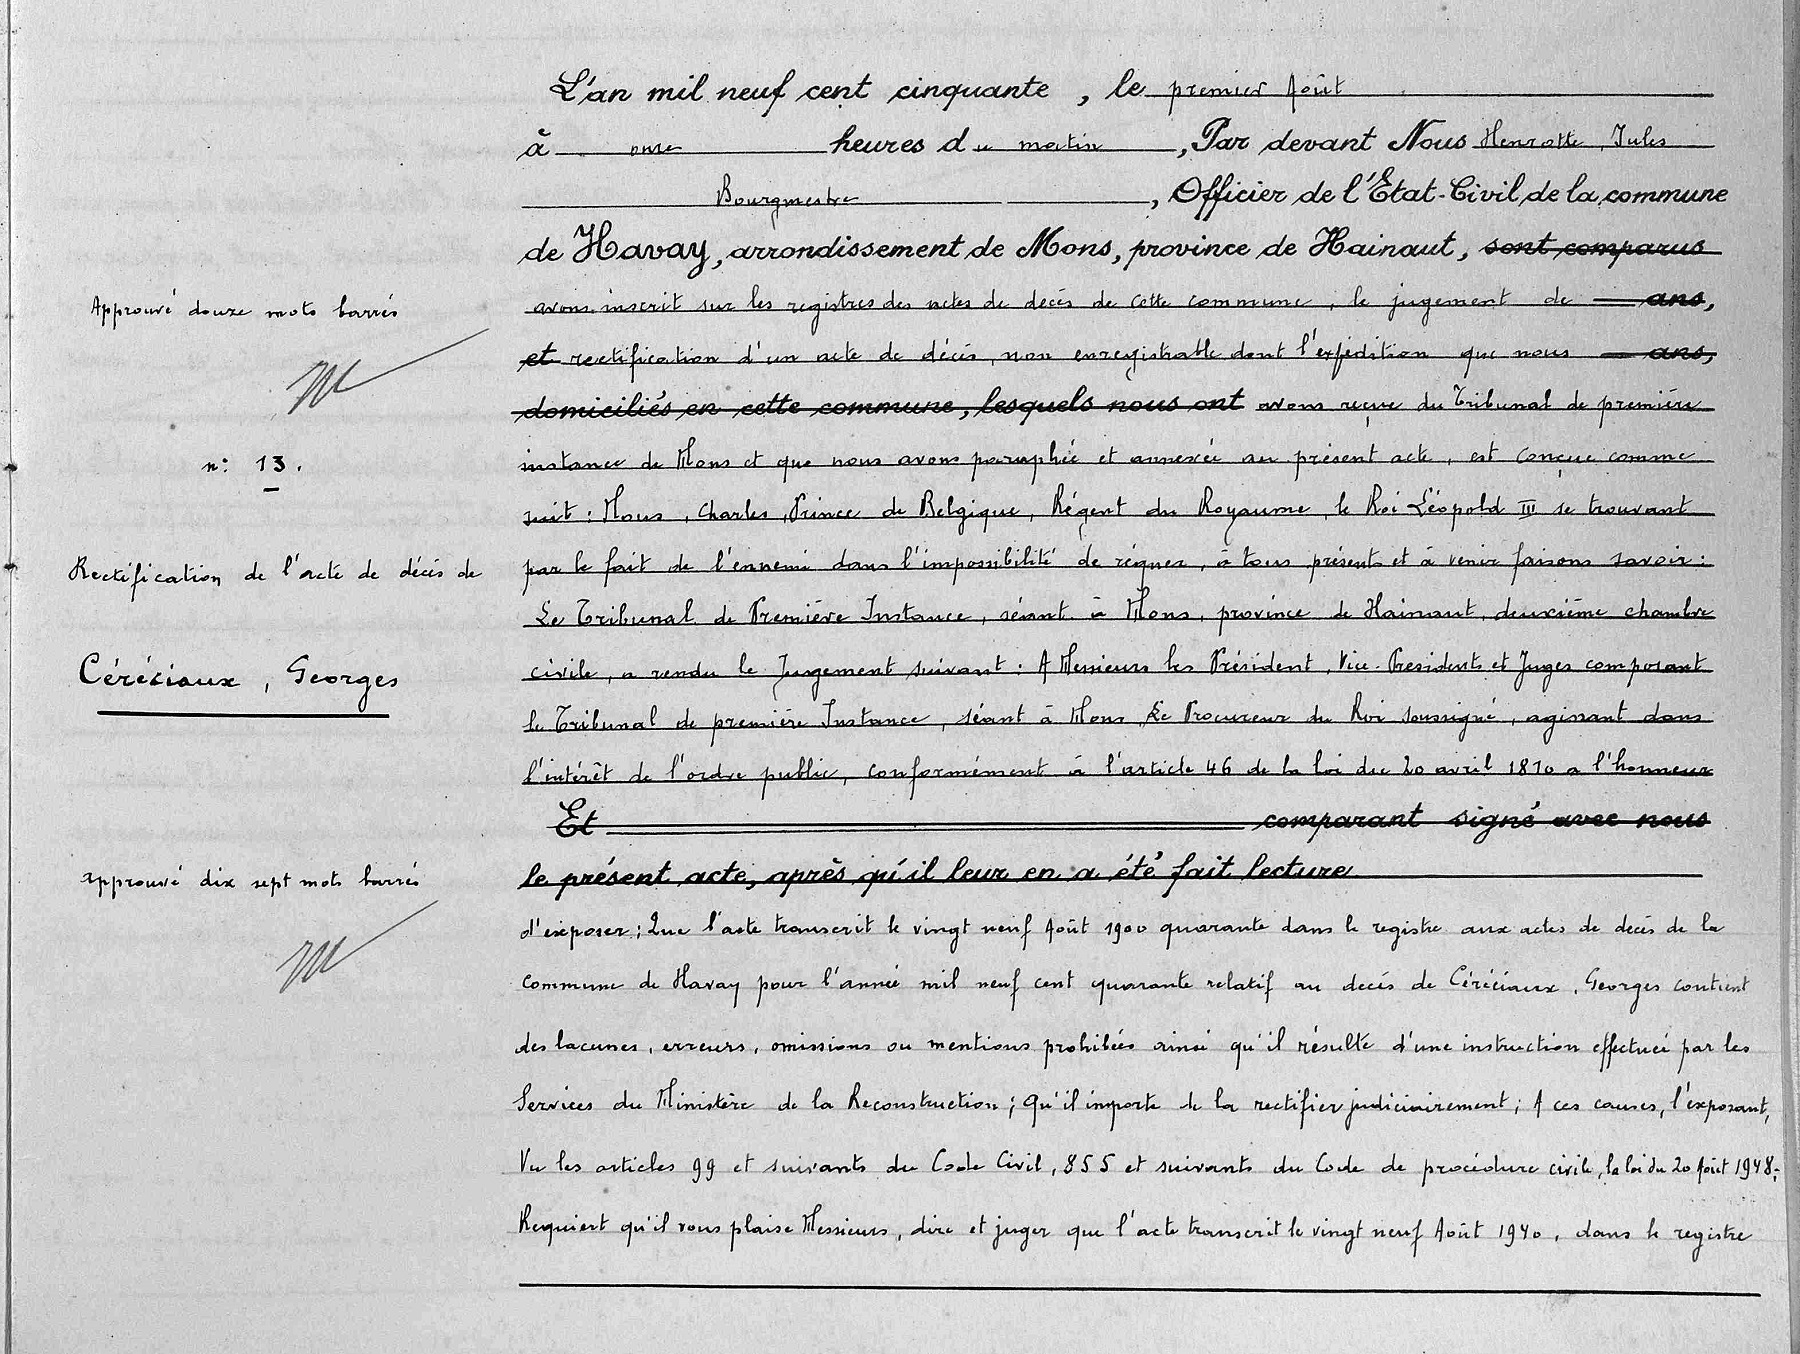 L'an mil neuf cent cinquante, le premier Août
à onze heures du matin, Par devant Nous Henrotte, Jules
Bourgmestre, Officier de l'Etat-Civil de la commune
de Havay, arrondissement de Mons, province de Hainaut, sont comparus
Approuvé douze mots barrés
avons inscrit sur les registres des actes de décès de cette commune, le jugement de ans,
et rectification d'un acte de décès, non enregistrable dont l'expédition que nous ans,
domiciliés en cette commune, lesquels nous ont avons reçue du Tribunal de première
n° 13.
instance de Mons et que nous avons paraphée et annexée au présent acte, est conçue comme
suit : Nous, Charles, Prince de Belgique, Régent du Royaume, le Roi Léopold III se trouvant
Rectification de l'acte de décès de
par le fait de l'ennemi dans l'impossibilité de régner, à tous présents et à venir faisons savoir :
Le Tribunal de Première Instance, séant à Mons, province de Hainaut, deuxième chambre
Céréciaux, Georges
civile, a rendu le Jugement suivant : A Messieurs les Président, Vice-Présidents et Juges composant
le Tribunal de première Instance, séant à Mons, Le Procureur du Roi soussigné, agissant dans
l'intérêt de l'ordre public, conformément à l'article 46 de la loi du 20 avril 1810 a l'honneur
Et comparant signé avec nous
le présent acte, après qu'il leur en a été fait lecture
approuvé dix sept mots barrés
d'exposer ; Que l'acte transcrit le vingt neuf Août 1900 quarante dans le registre aux actes de décès de la
commune de Havay pour l'année mil neuf cent quarante relatif au décès de Céréciaux, Georges contient
des lacunes, erreurs, omissions ou mentions prohibées ainsi qu'il résulte d'une instruction effectuée par les
Services du Ministère de la Reconstruction ; Qu'il importe de la rectifier judiciairement ; A ces causes, l'exposant,
Vu les articles 99 et suivants du Code Civil, 855 et suivants du Code de procédure civile, la loi du 20 Août 1948 ;
Requiert qu'il vous plaise Messieurs, dire et juger que l'acte transcrit le vingt neuf Août 1940, dans le registre